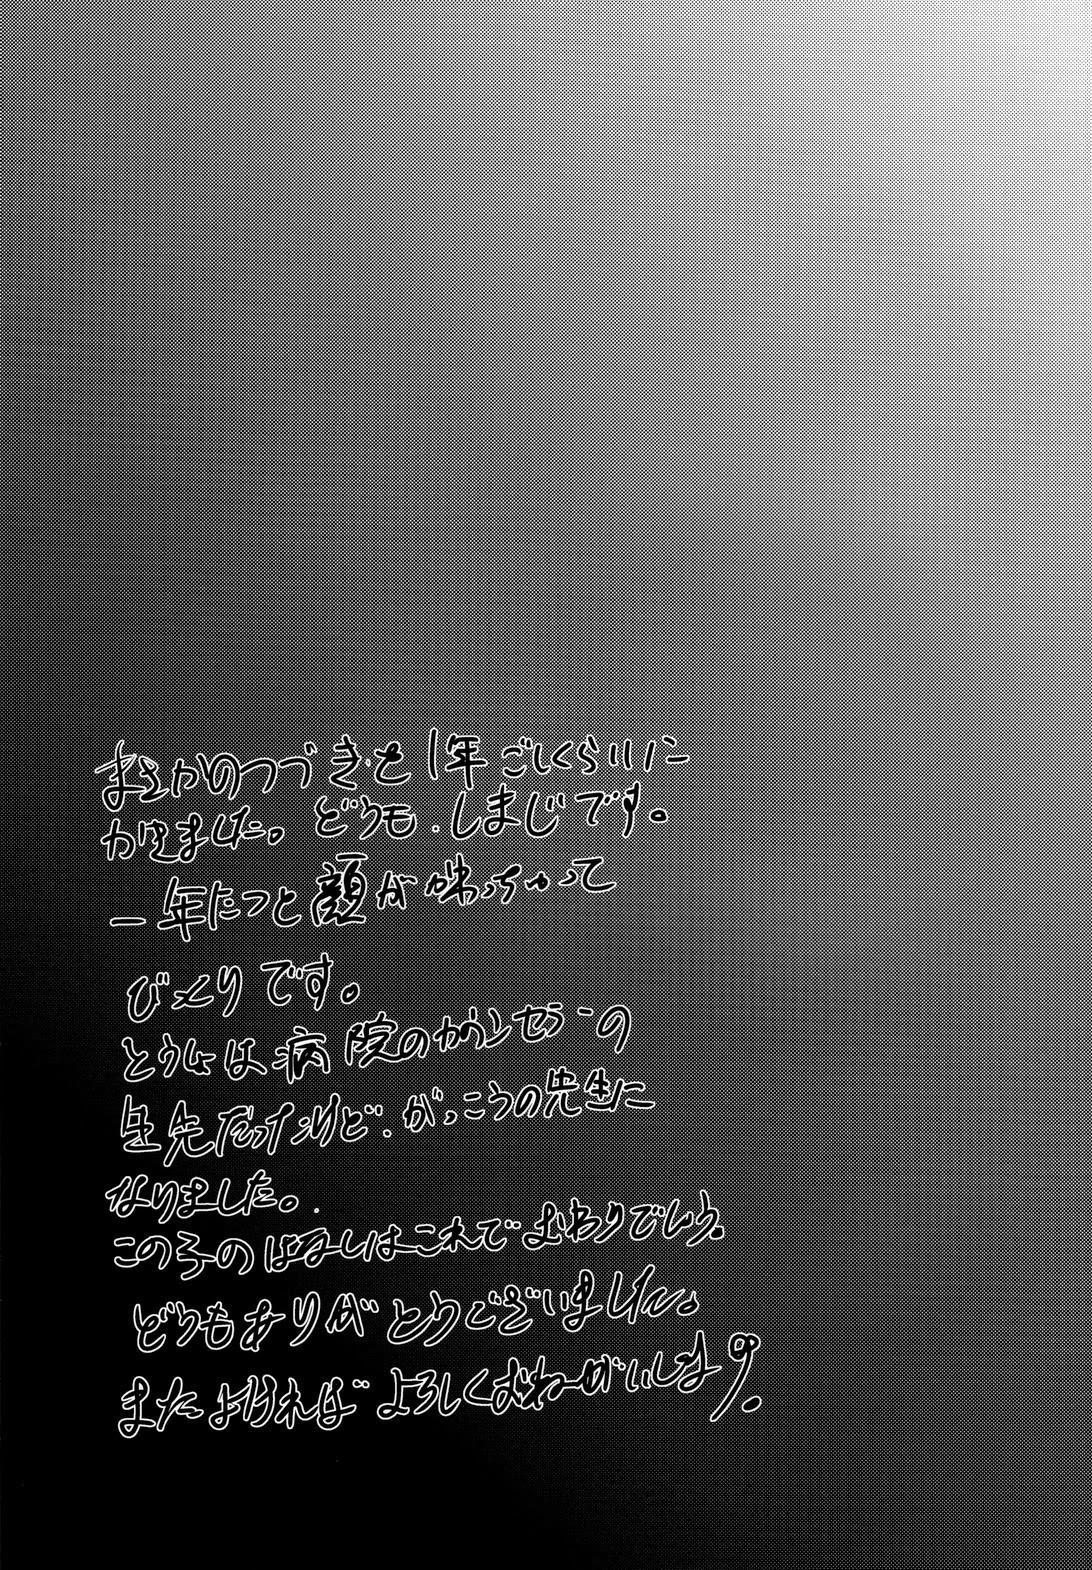 まさかのつづきを1年ごしくらいに
かきました。どうも.しまじです。
一年たつと顔が変わっちゃって
びっくりです。
とうじは病院のカウンセラーの
先生だったけど.がっこうの先生に
なりました。.
この子のはなしはこれでおわりでしょう。
どうもありがとうございました。
またよければよろしくおねがいします。